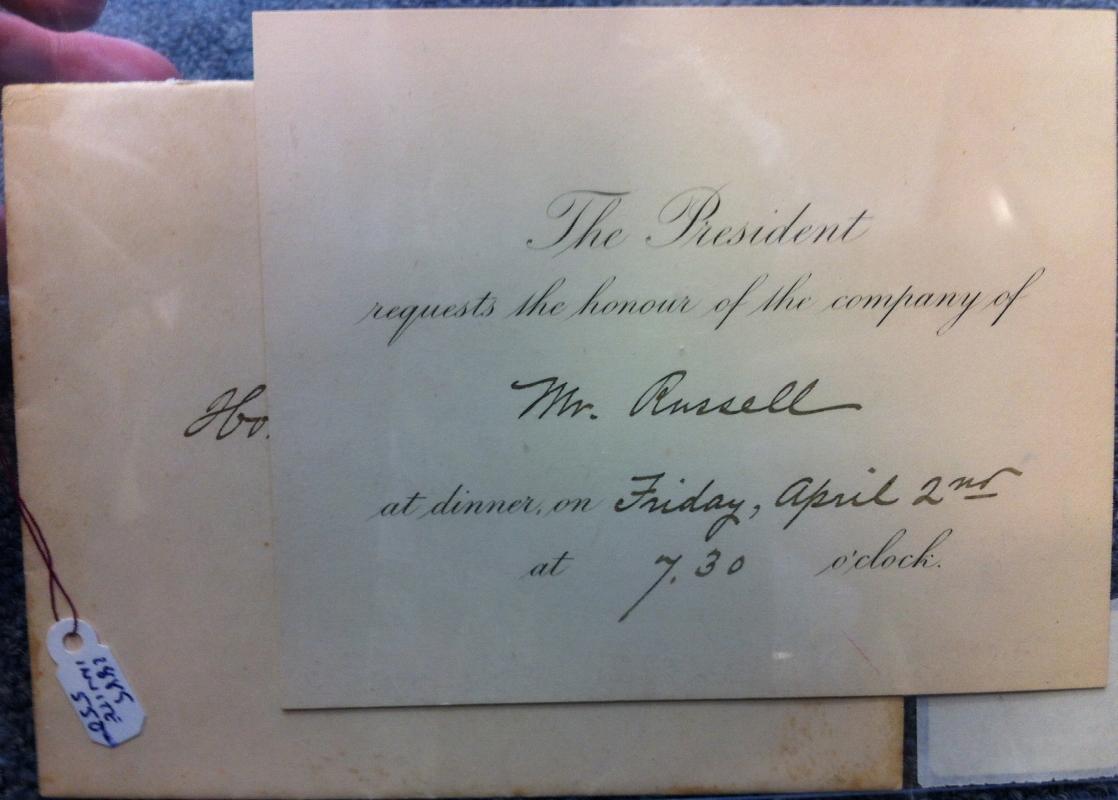 The President
requests the honour of the company of
Mr. Russell
at dinner, on Friday, April 2nd
at 7.30 o'clock.
Ho
255